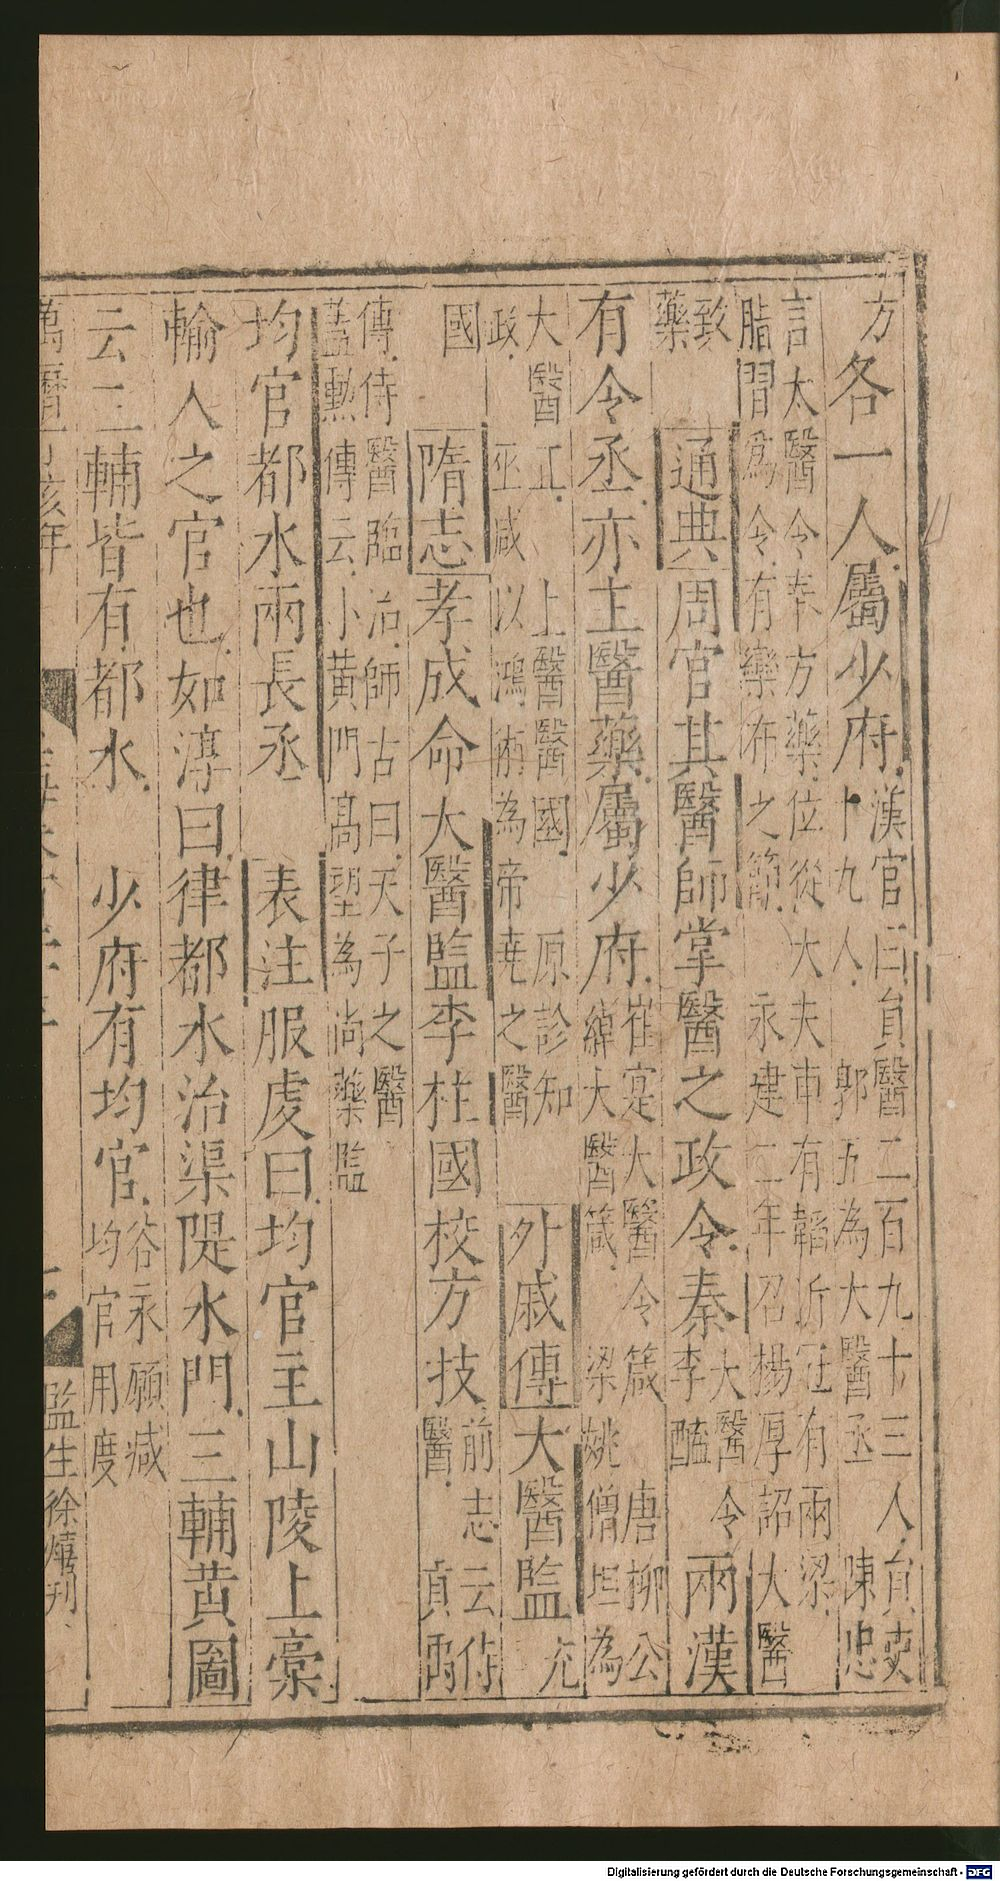 方各一人屬少府漢官曰員醫二百九十三人員吏
十九人郭玉為大醫丞陳忠
言太醫令奉方藥位從大夫車有韜近冠有兩梁
脂間為令有欒布之節永建二年召楊厚詔大醫
致
藥通典周官其醫師掌醫之政令秦大醫令
李醯兩漢
有令丞亦主醫藥屬少府崔寔大醫令箴唐柳公
綽大醫箴梁姚僧坦為
大醫正上醫醫國原診知
政巫咸以鴻術為帝堯之醫外戚傳大醫監充
國隋志孝成命大醫監李柱國校方技前志云侍
醫貢禹
傳侍醫臨治師古曰天子之醫
蓋勳傳云小黃門高望為尚藥監
均官都水兩長丞表注服虔曰均官主山陵上稾
輸人之官也如淳曰律都水治渠隄水門三輔黃圖
云三輔皆有都水少府有均官谷永願減
均官用度
監生徐熺刊
Digitalisierung gefördert durch die Deutsche Forschungsgemeinschaft - DFG